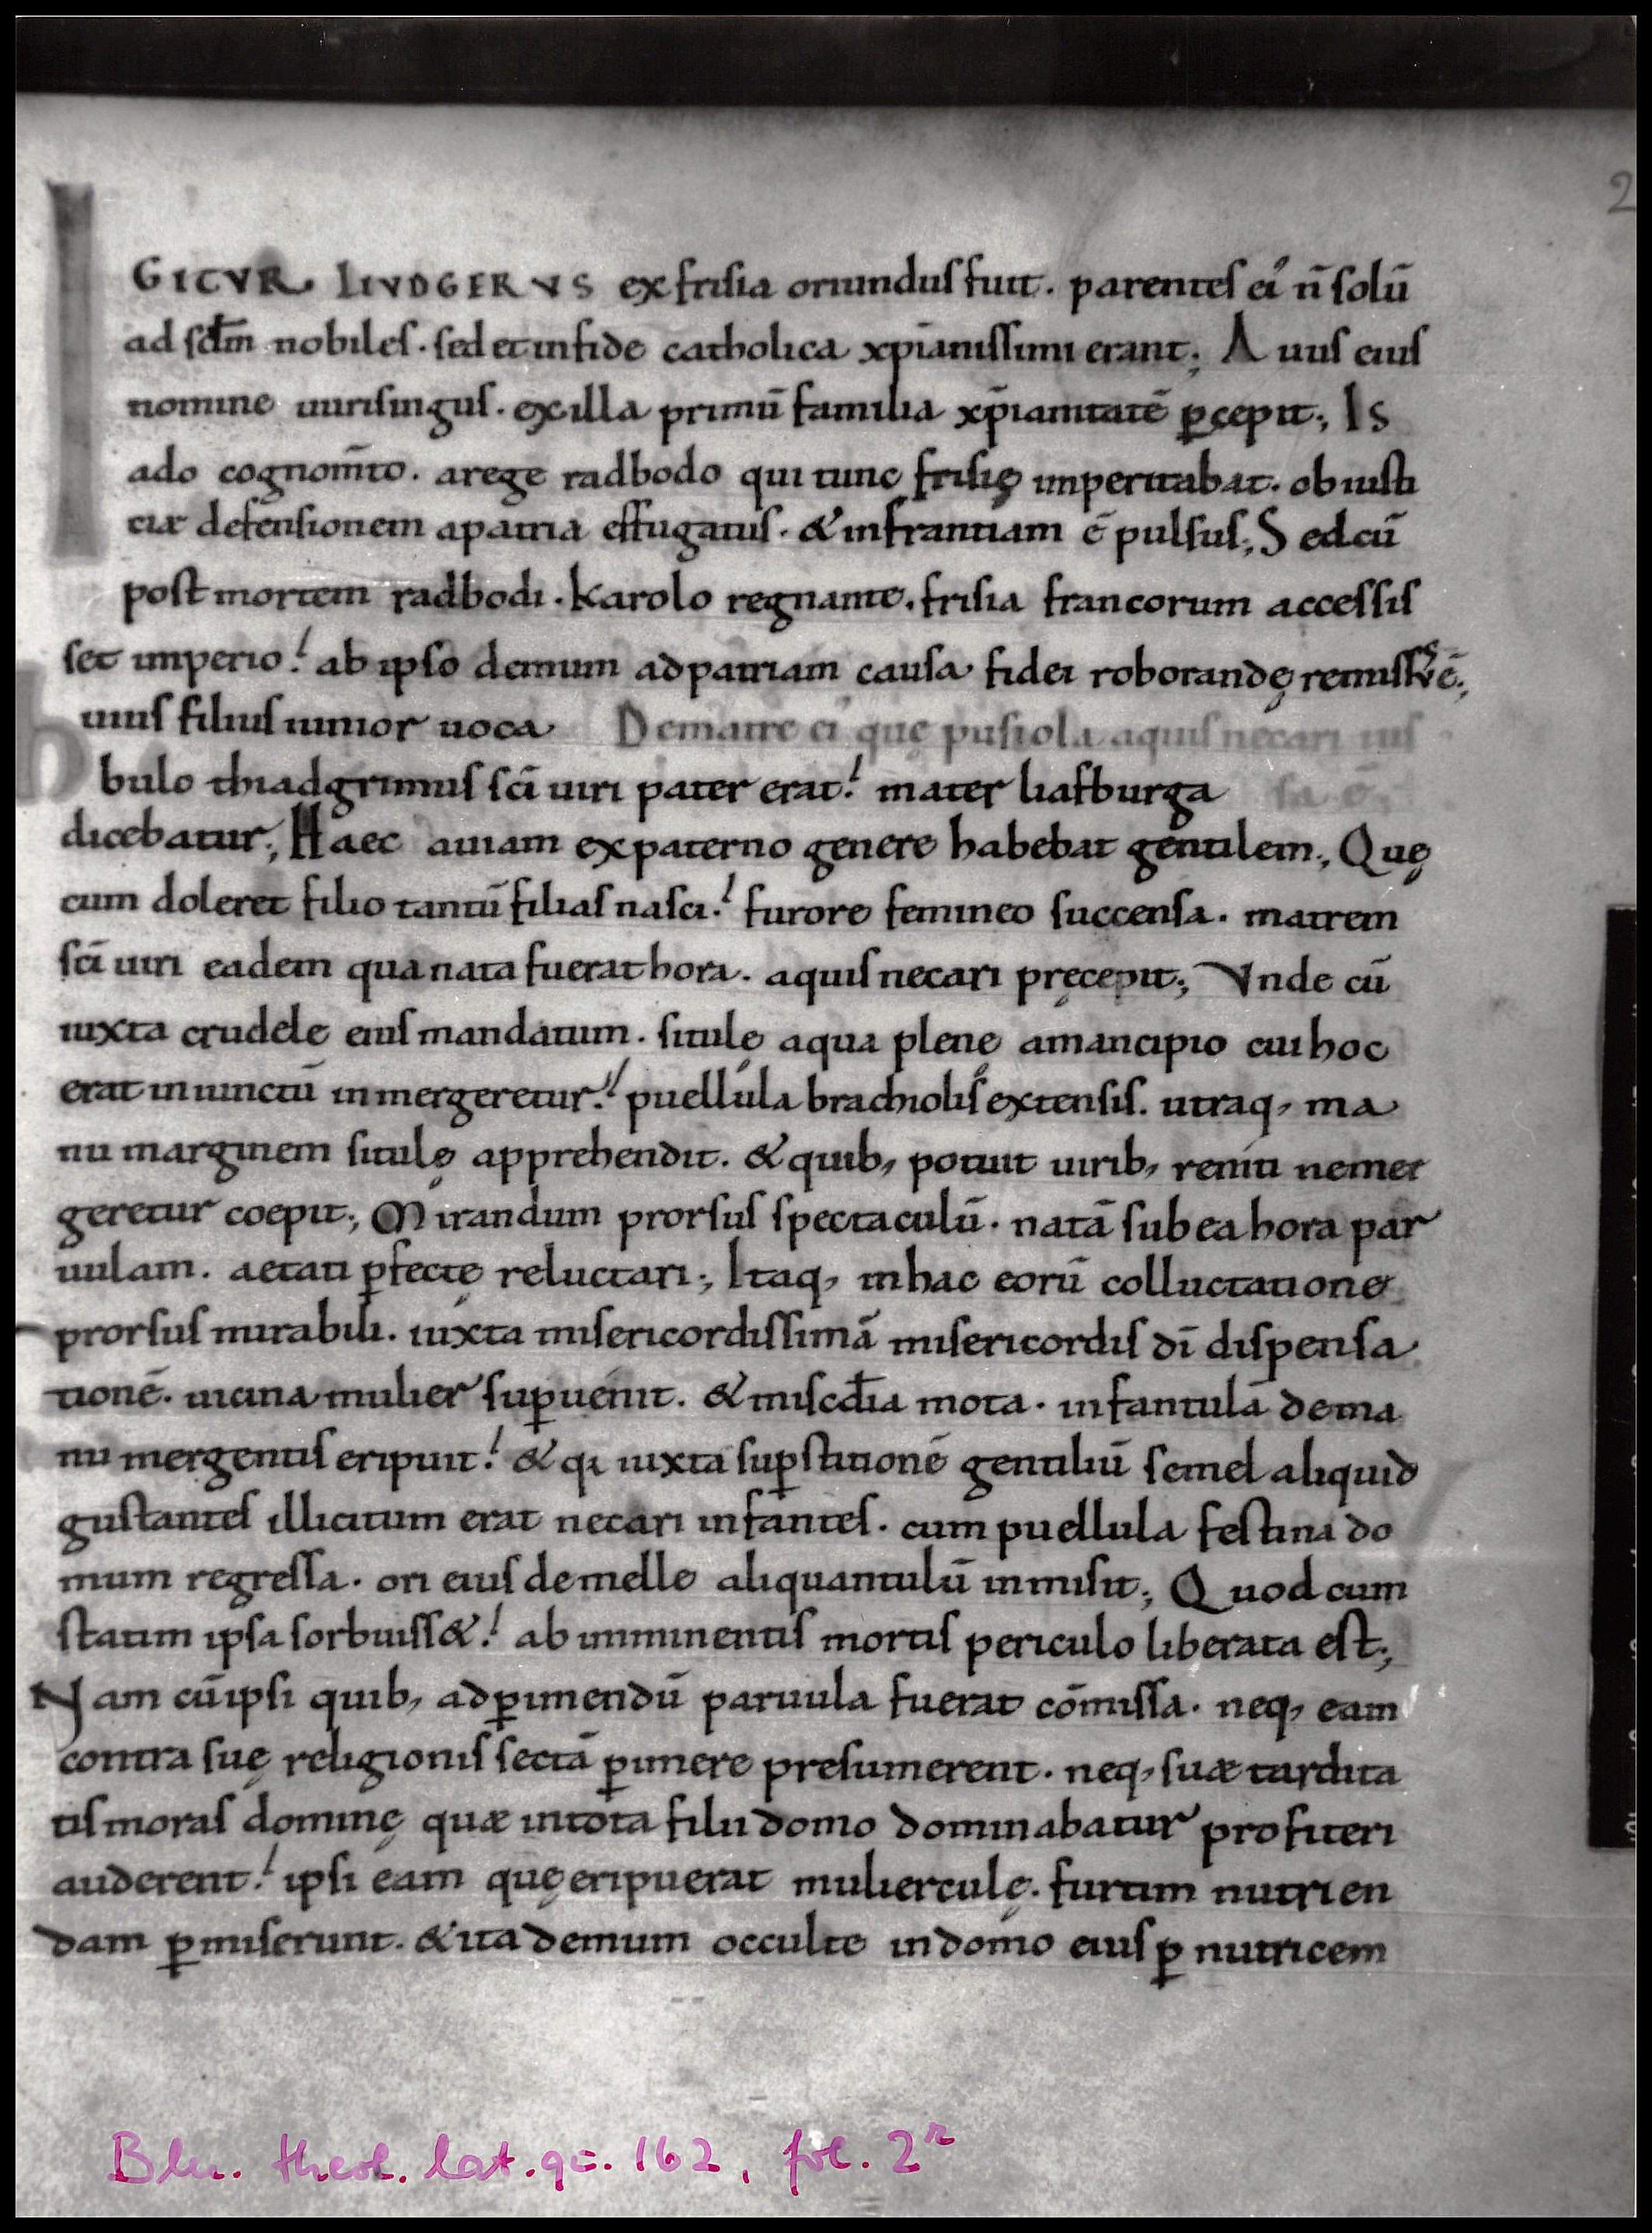 2
IGITVR. LIVDGERVS ex friſia oriunduſ fuit. parenteſ eiꝰ n̄ ſolū
ad ſc̄l̄m nobileſ. ſed et in fide catholica xp̄ianiſſimi erant; Auuſ eiuſ
nomine uurſinguſ. ex illa primū familia xp̄ianitatē ꝑcepit; Is
ado cognom̄to. a rege radbodo qui tunc friſię imperitabat. ob iuſti
ciæ defenſionem a patria effugatuſ. & in frantiam ē pulſuſ; Sed cū
poſt mortem radbodi. karolo regnante. friſia francorum acceſſiſ
ſet imperio! ab ipſo demum ad patriam cauſa fidei roborandę remiſſꝰ ē;
huiuſ filiuſ iunior uoca De matre eiꝰ quę puſiola aquiſ necari iuſ
bulo thiadgrimuſ ſc̄i uiri pater erat! mater liafburga ſa ē;
dicebatur; Haec auiam ex paterno genere habebat gentilem; Quę
cum doleret filio tantū filiaſ naſci! furore femineo ſuccenſa. matrem
ſc̄i uiri eadem qua nata fuerat hora. aquiſ necari pręcepit; Vnde cū
iuxta crudele eiuſ mandatum. ſitulę aqua plenę a mancipio cui hoc
erat iniunctū inmergeretur! puellula brachioliſ extenſiſ. utraq, ma
nu marginem ſitulę apprehendit. & quib, potuit uirib, reniti ne mer
geretur coepit; Mirandum prorſuſ ſpectaculū. natā ſub ea hora par
uulam. aetati ꝑfectę reluctari; Itaq, in hac eorū colluctatione
prorſuſ mirabili. iuxta miſericordiſſimā miſericordiſ dī diſpenſa
tionē. uicina mulier ſuꝑuenit. & miſcd̄ia mota. infantulā de ma
nu mergentiſ eripuit! & qꝛ iuxta ſuꝑſtitionē gentiliū ſemel aliquid
guſtanteſ illicitum erat necari infanteſ. cum puellula feſtina do
mum regreſſa. ori eiuſ de melle aliquantulū inmiſit; Quod cum
ſtatim ipſa ſorbuiſſ&! ab imminentiſ mortiſ periculo liberata eſt;
Nam cū ipſi quib, ad ꝑimendū paruula fuerat cōmiſſa. neq, eam
contra ſuę religioniſ ſectā ꝑimere preſumerent. neq, ſuæ tardita
tiſ moraſ dominę quæ in tota filii domo dominabatur profiteri
auderent! ipſi eam quę eripuerat mulierculę. furtim nutrien
dam ꝑmiſerunt. & ita demum occulte in domo eiuſ ꝑ nutricem
Bln. theol. lat. qu. 162, fol. 2r